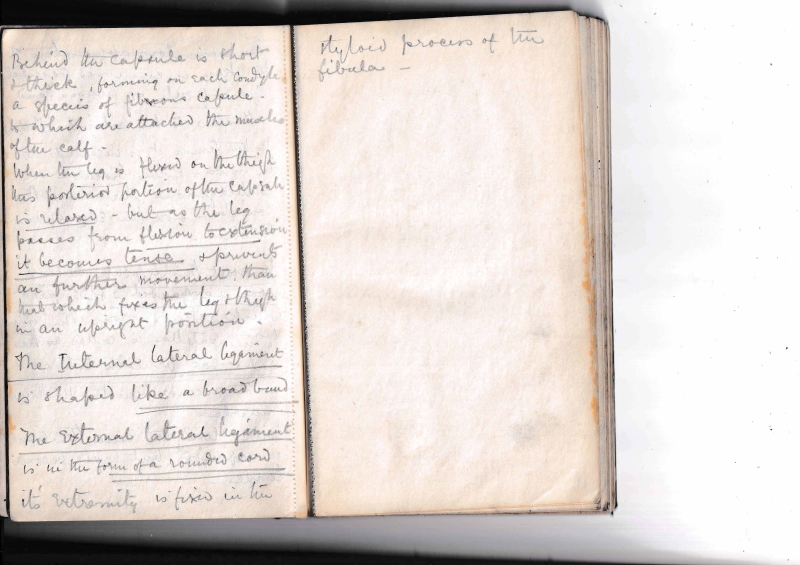 Behind the capsule is short
& thick, forming on each condyle
a species of fibrous capsule.
to which are attached the muscles
of the calf.
When the leg is flexed on the thigh
this posterior portion of the capsule
is relaxed - but as the leg
passes from flexion to extension
it becomes tense & prevents
an further movement than
that which fixes the leg & thigh
in an upright position.
The Internal lateral ligament
is shaped like a broad band
The External lateral ligament
is in the form of a rounded cord
it's extremity is fixed in the
styloid process of the
fibula -